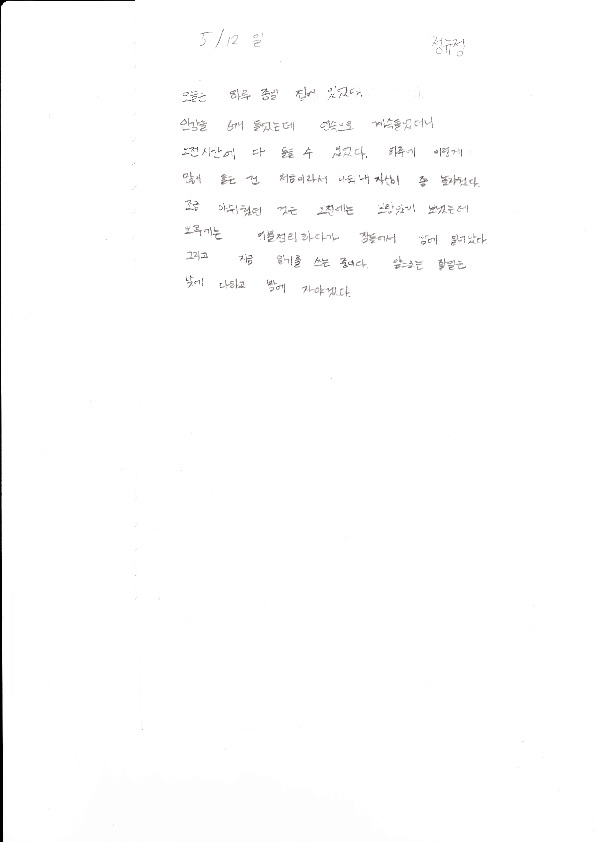 5/12 일 정규정
오늘은 하루 종일 집에 있었다.
인강을 6개 들었는데 연속으로 계속들었더니
오전시간에 다 들을 수 있었다. 하루에 이렇게
많이 들은 건 처음이라서 나도 내 자신이 좀 놀라웠다.
조금 아쉬웠던 것은 오전에는 보람있게 보냈는데
오후에는 이불정리하다가 잠들어서 밤에 일어났다
그리고 지금 일기를 쓰는 중이다. 앞으로는 할일은
낮에 다하고 밤에 자야겠다.